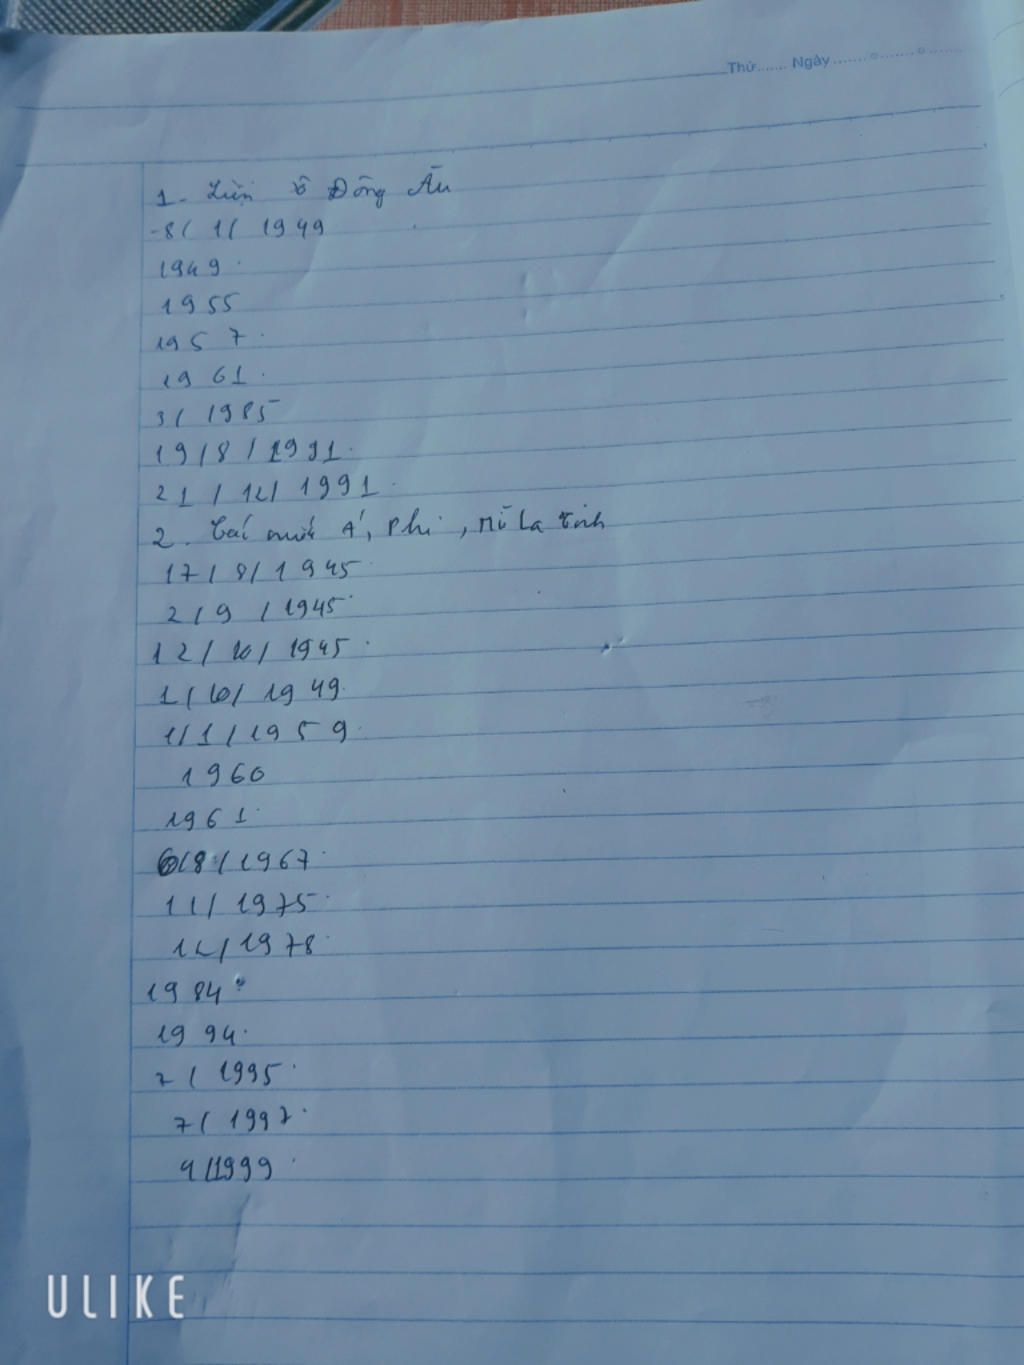 Thứ...... Ngày.......o.......o......
1- Liên Xô Đông Âu
-8/ 1/ 1949
1949.
1955
1957.
1961.
3/ 1985
19/8/1991.
21/12/1991.
2. Các nước Á, Phi, Mĩ La tinh
17/8/1945
2/9/1945
12/10/1945.
1/10/1949.
1/1/1959.
1960
1961.
6/8/1967.
11/1975.
12/1978.
1984
1994.
7/ 1995.
7/ 1997.
4/1999.
ULIKE